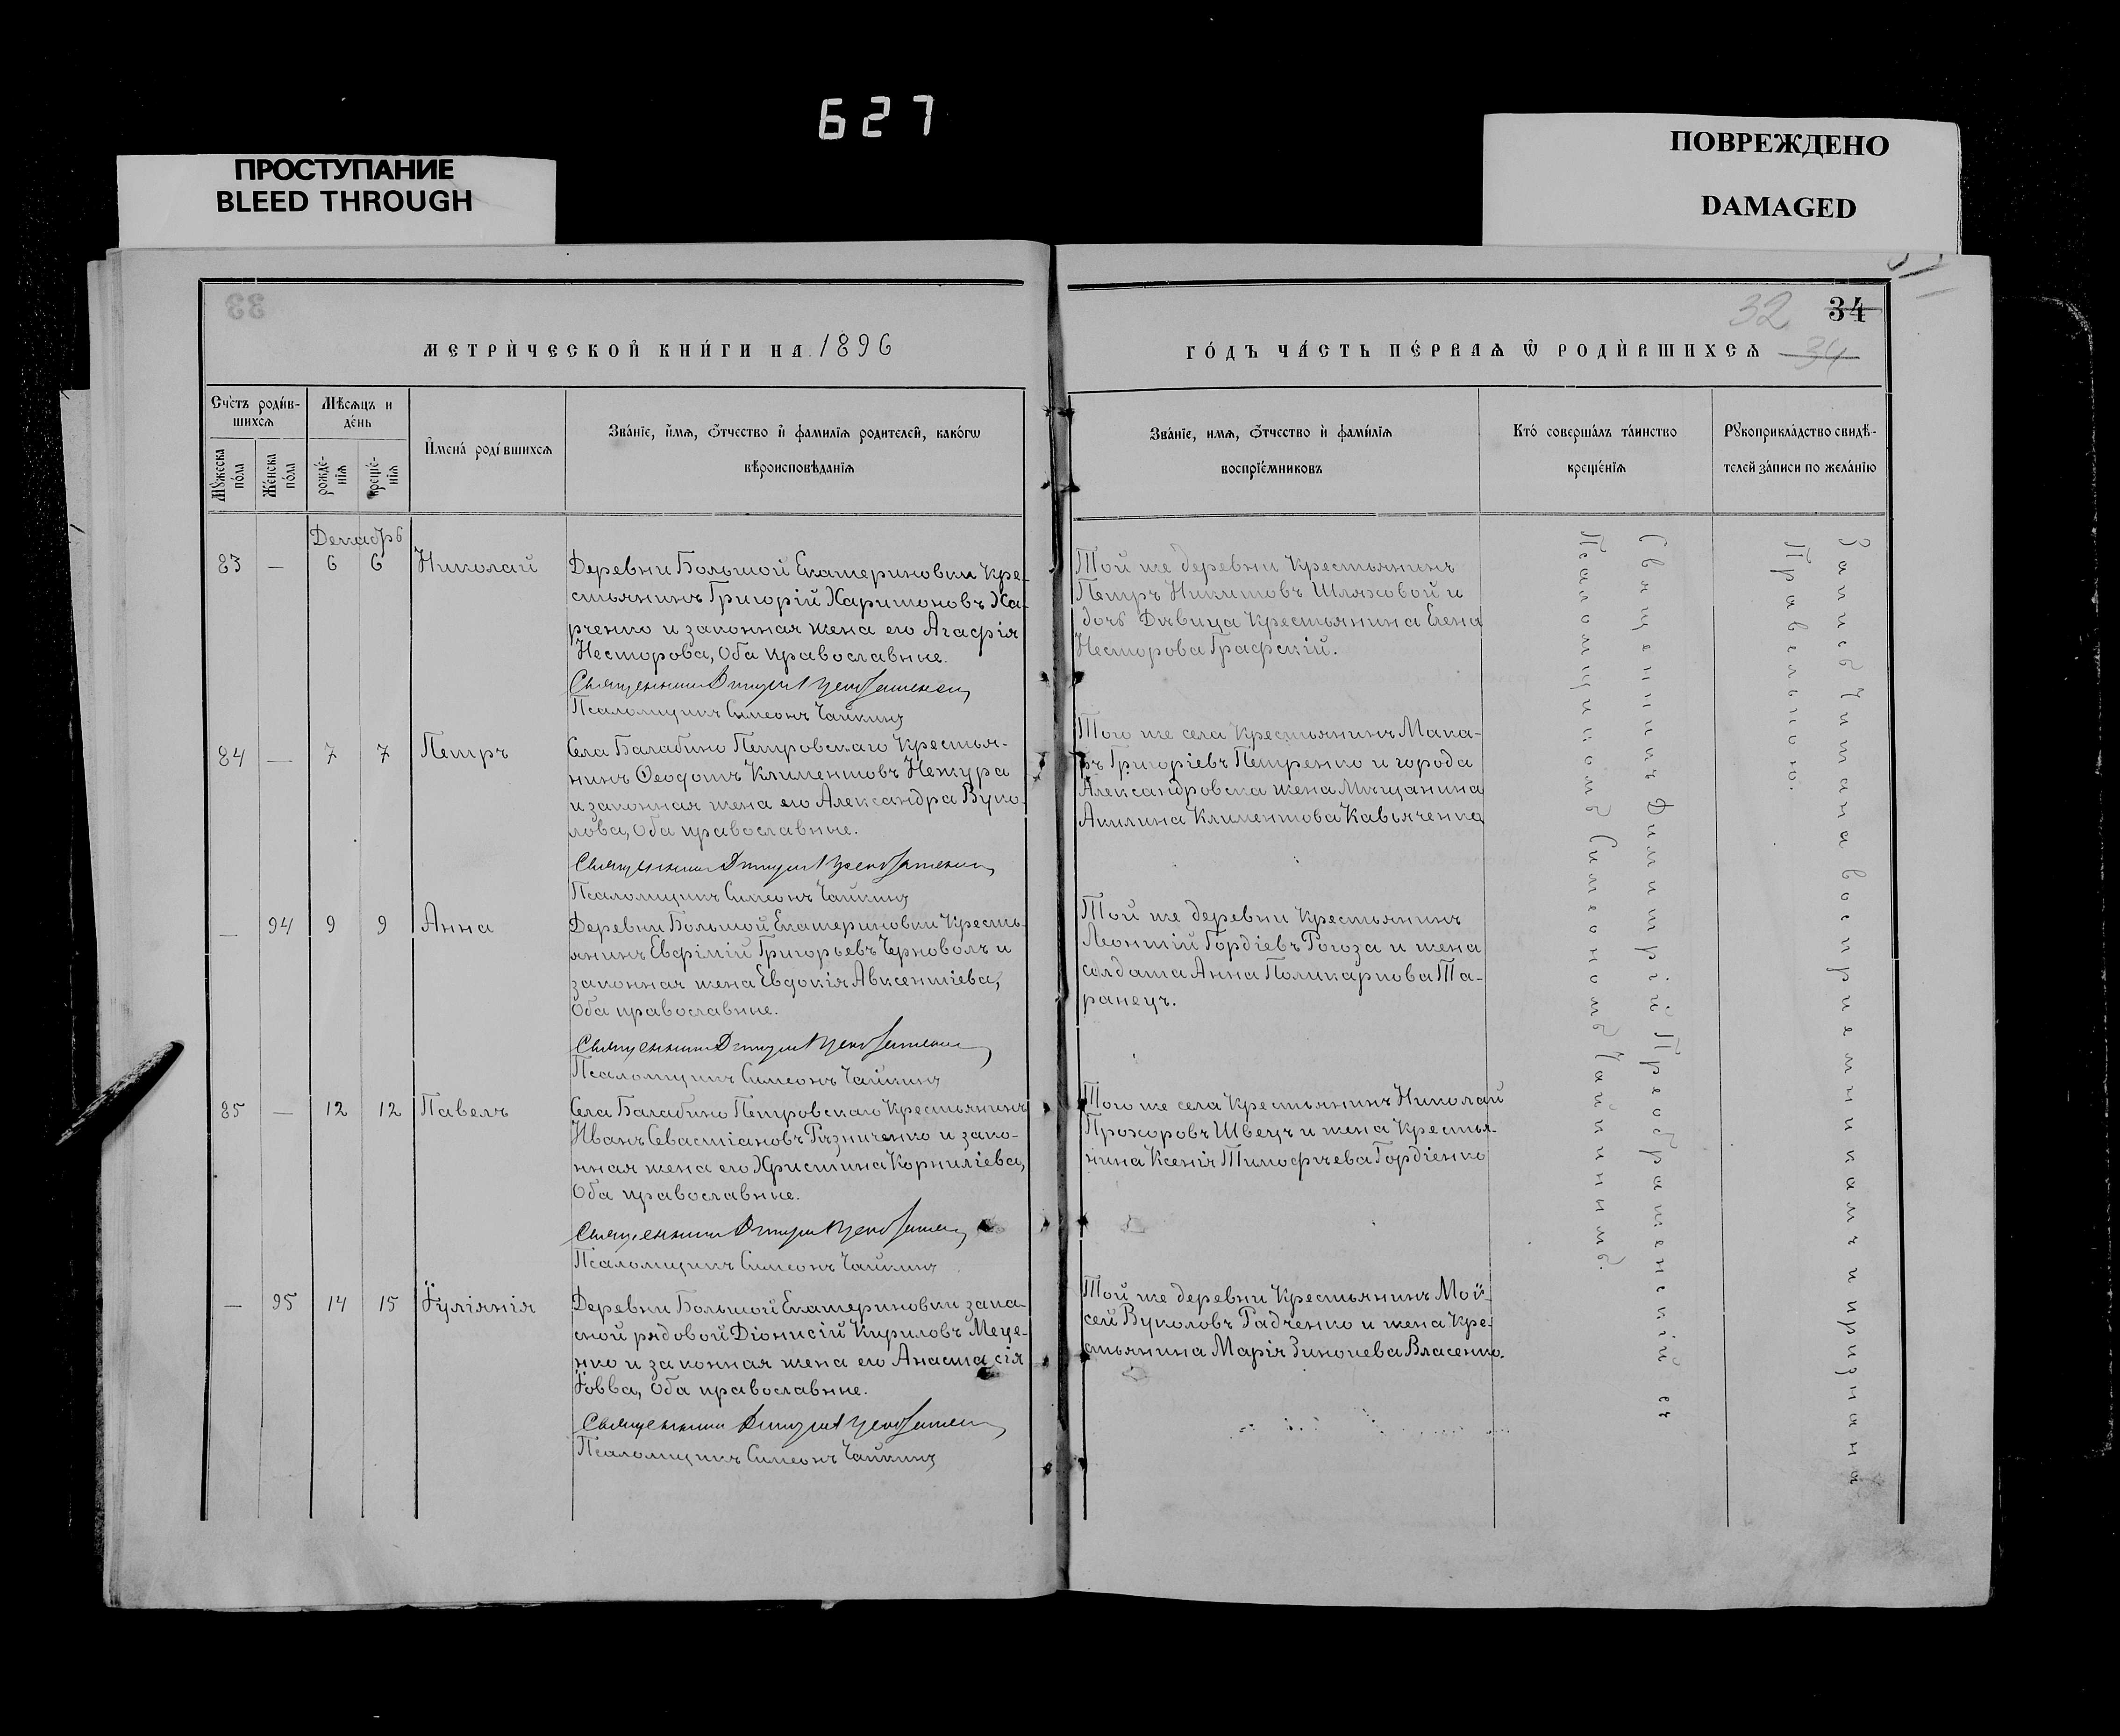 627
ПРОСТУПАНИЕ
BLEED THROUGH
ПОВРЕЖДЕНО
DAMAGED
33
32 34
34
МЕТРИ́ЧЕСКОЙ КНИ́ГИ НА 1896
ГО́ДЪ ЧА́СТЬ ПЕ́РВАѦ Ѿ РОДИ́ВШИХСѦ
Сче́тъ роди́в-
шихсѧ
Мꙋ́жеска по́ла
Же́нска по́ла
Мѣ́сѧцъ и
де́нь
рожде́-
нїѧ
креще́-
нїѧ
И҆мена́ роди́вшихсѧ
Зва́нїе, и҆́мѧ, ѻ҆́тчество и҆ фами́лїѧ роди́телей, како́гѡ
вѣроисповѣ́данїѧ
Зва́нїе, и́мѧ, ѻ҆́тчество и҆ фами́лїѧ
воспрїе́мниковъ
Кто́ соверша́лъ та́инство
креще́нїѧ
Рꙋкоприкла́дство свидѣ́-
телей за́писи по жела́нїю
Декабрь
83 — 6 6 Николай
Деревни Большой Екатериновки Кре-
стьянинъ Григорій Харитоновъ Ха-
рченко и законная жена его Агафія
Несторова, Оба православные.
Священникъ Димитрій Преображенскій
Псаломщикъ Симеонъ Чайкинъ
Той же деревни Крестьянинъ
Петръ Никитовъ Шляховой и
дочь Дѣвица Крестьянина Елена
Несторова Графскій.
84 — 7 7 Петръ
Села Балабино Петровскаго Крестья-
нинъ Ѳеодотъ Климентовъ Нежура
и законная жена его Александра Вуко-
лова, Оба православные.
Священникъ Димитрій Преображенскій
Псаломщикъ Симеонъ Чайкинъ
Того же села Крестьянинъ Мака-
ръ Григоріевъ Петренко и города
Александровска жена Мѣщанина
Акилина Климентова Кавьяченко
— 94 9 9 Анна
Деревни Большой Екатериновки Кресть-
янинъ Евфимій Григорьевъ Черноволъ и
законная жена Евдокія Авксентіева,
Оба православные.
Священникъ Димитрій Преображенскій
Псаломщикъ Симеонъ Чайкинъ
Той же деревни Крестьянинъ
Леонтій Гордіевъ Рогоза и жена
солдата Анна Поликарпова Та-
ранецъ.
85 — 12 12 Павелъ
Села Балабино Петровскаго Крестьянинъ
Иванъ Севастіановъ Рѣзниченко и зако-
нная жена его Христина Корниліева,
Оба православные.
Священникъ Димитрій Преображенскій
Псаломщикъ Симеонъ Чайкинъ
Того же села Крестьянинъ Николай
Прохоровъ Швецъ и жена Крестья-
нина Ксенія Тимофѣева Гордіенко
— 95 14 15 Іуліянія
Деревни Большой Екатериновки запа-
сной рядовой Діонисій Кириловъ Меце-
нко и законная жена его Анастасія
Іовва, Оба православные.
Священникъ Димитрій Преображенскій
Псаломщикъ Симеонъ Чайкинъ
Той же деревни Крестьянинъ Мой-
сей Вуколовъ Радченко и жена Кре-
стьянина Марія Зиновіева Власенко.
Священникъ Димитрій Преображенскій съ
Псаломщикомъ Симеономъ Чайкинымъ.
Запись читана воспріемникамъ и признана
Правельною.